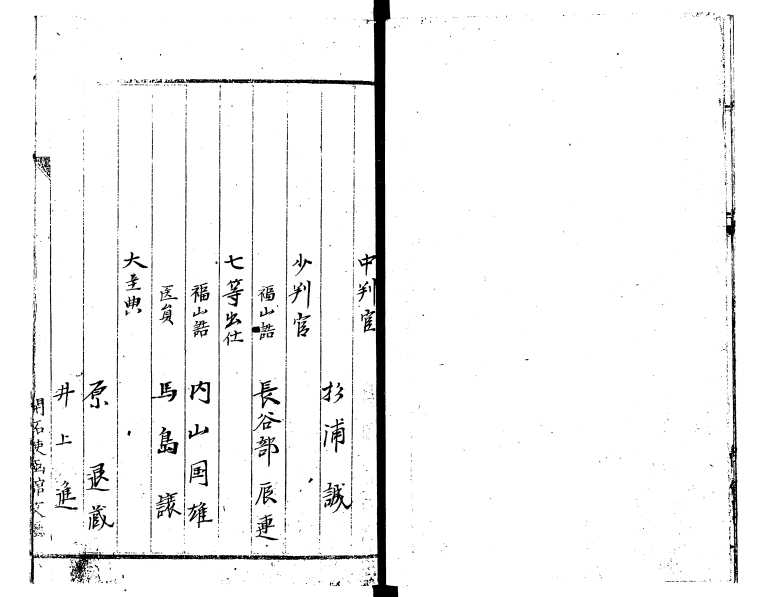 中判官
杉浦誠
少判官
福山詰 長谷部辰連
七等出仕
福山詰 内山国雄
医員 馬島譲
大主典
原退蔵
井上進